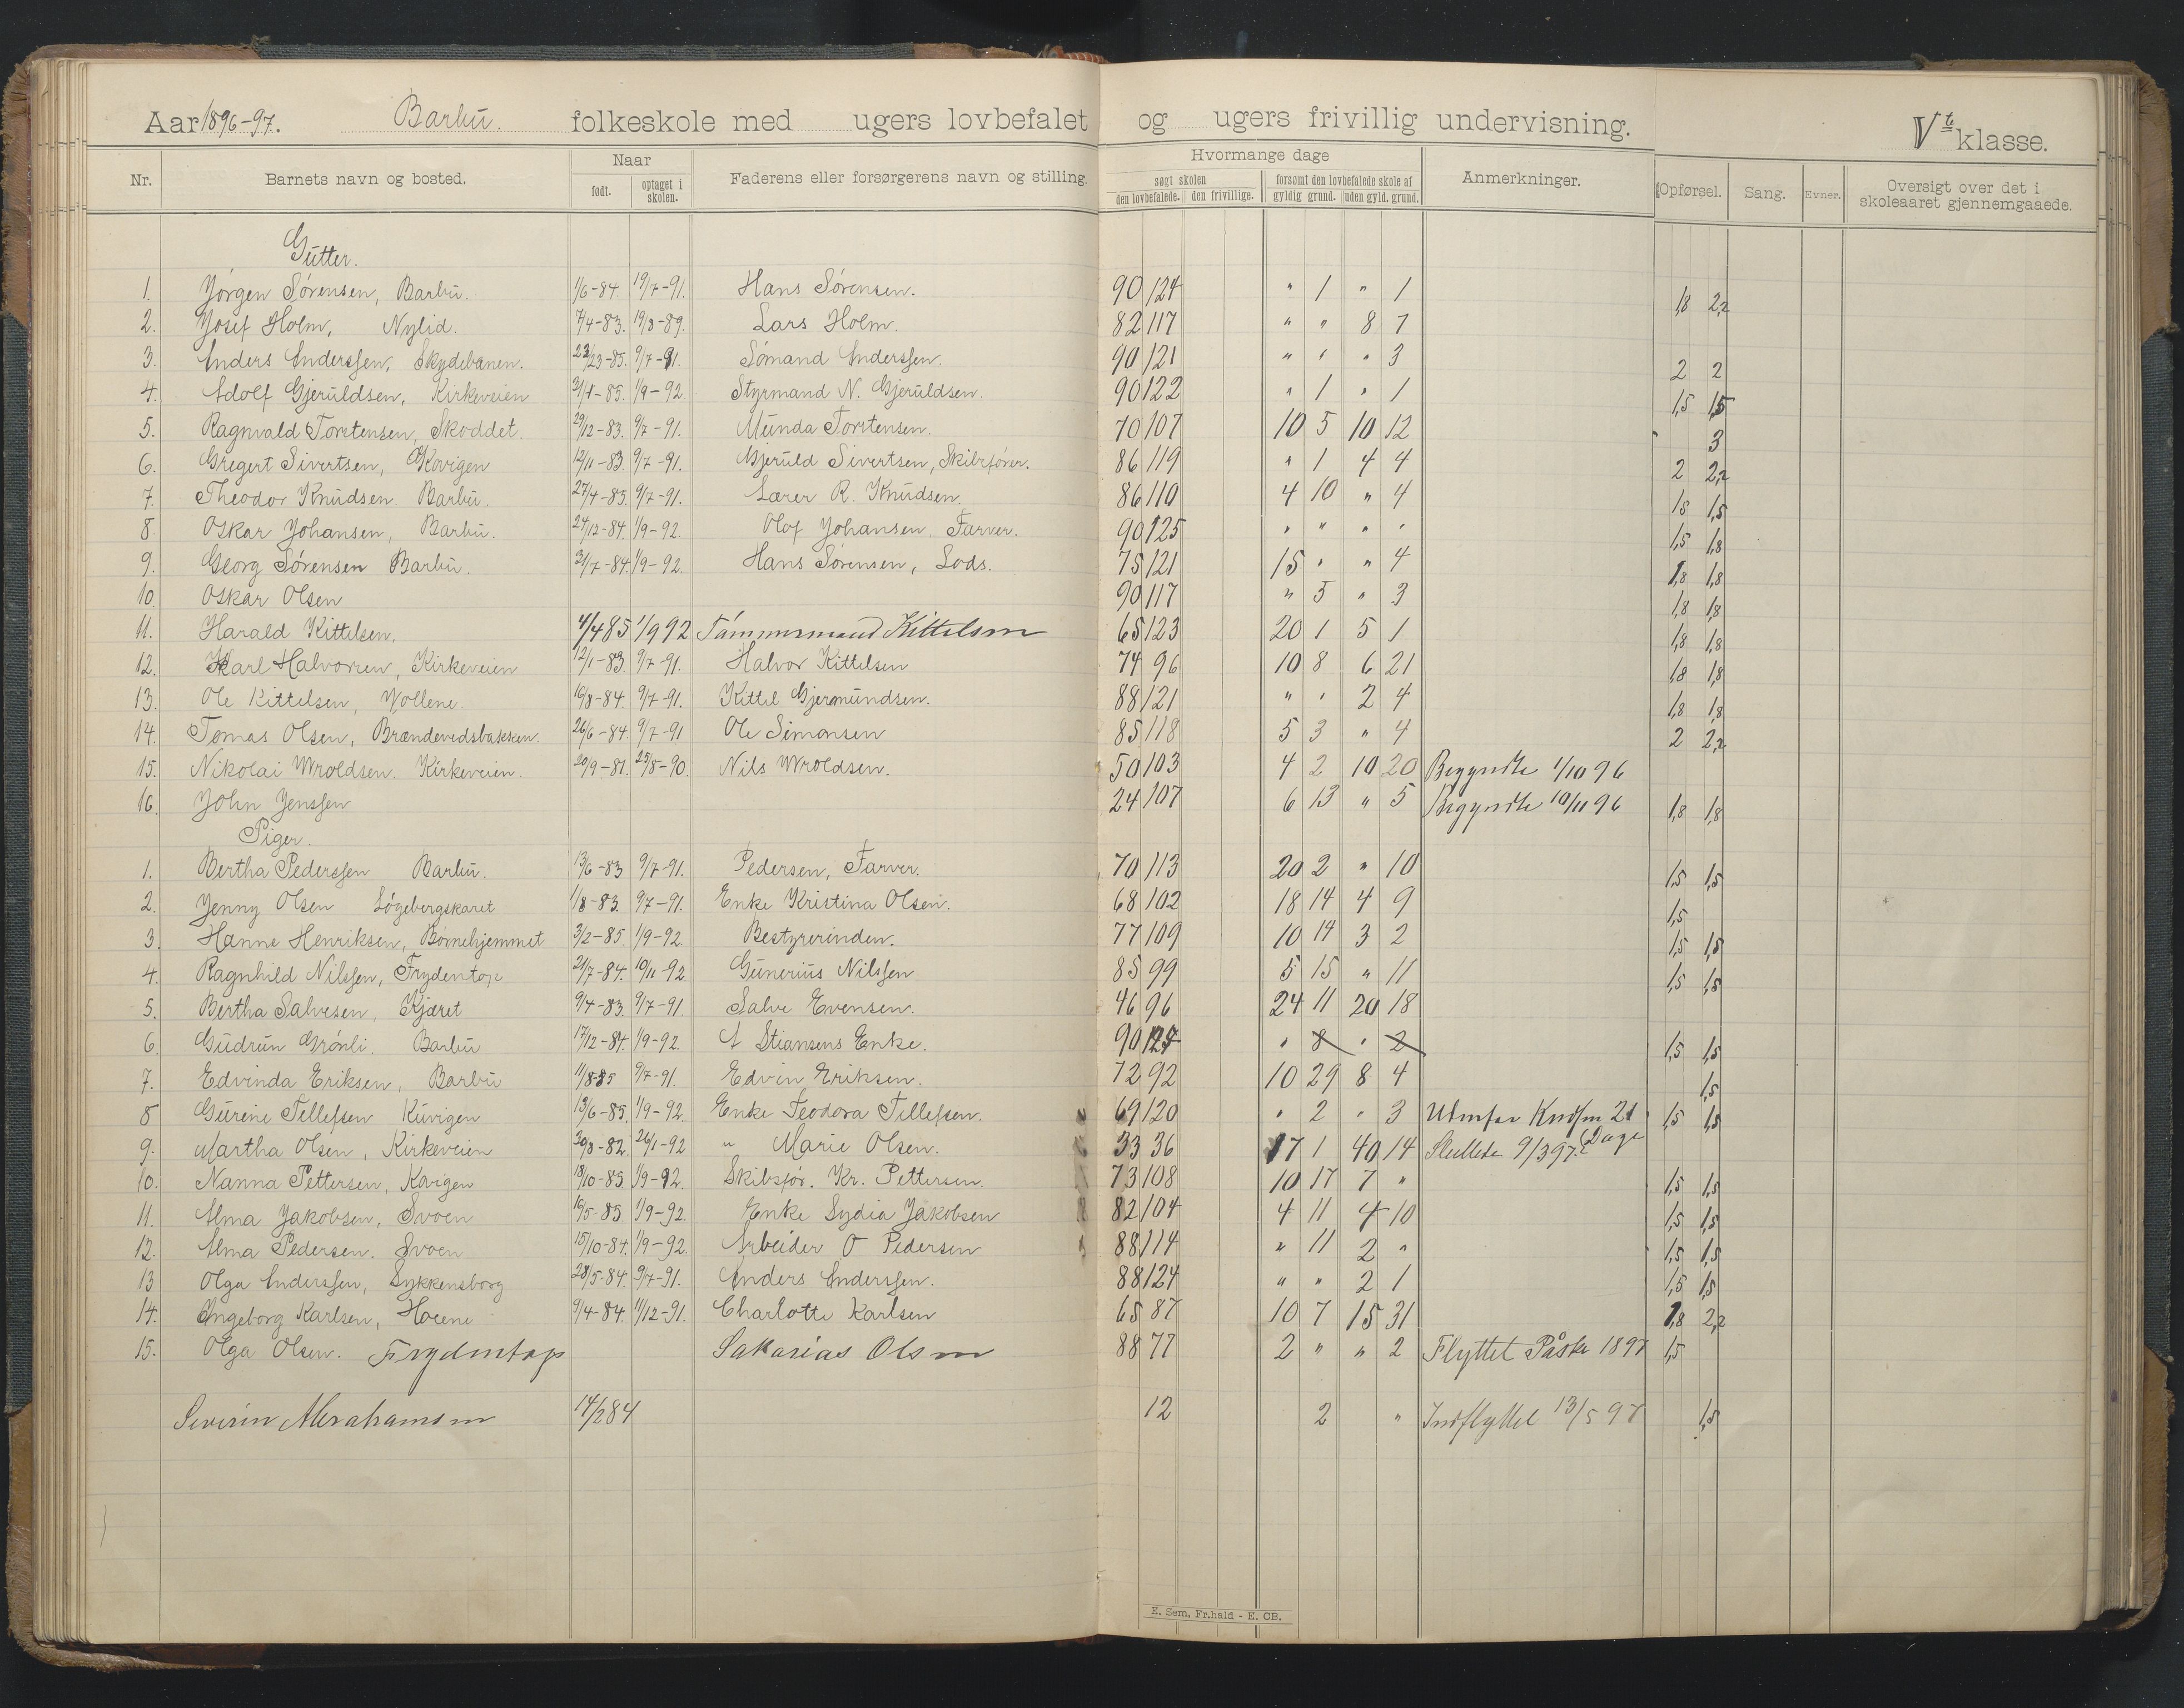 Aar 1896-97. Barbu. folkeskole med ugers lovbefalet og ugers frivillig undervisning. Vte klasse.
Nr. Barnets navn og bosted. Naar født. optaget i skolen. Faderens eller forsørgerens navn og stilling. Hvormange dage søgt skolen den lovbefalede. den frivillige. forsømt den lovbefalede skole af gyldig grund. uden gyld. grund. Anmerkninger. Opførsel. Sang. Evner. Oversigt over det i skoleaaret gjennemgaaede.
Gutter.
1. Jörgen Sörensen, Barbu. 1/6-84. 19/7-91. Hans Sörensen. 90 124 " 1 " 1 1,8 2,2
2. Josef Holm, Nylid. 7/4-83. 19/8-89. Lars Holm. 82 117 " " 8 7
3. Anders Anderssen, Skydebanen. 9/7-91. Sömand Anderssen. 90 121 " " " 3 2 2
4. Adolf Gjeruldsen, Kirkeveien 1/9-92 Styrmand N. Gjeruldsen. 90 122 " 1 " 1 1,5 1,5
5. Ragnvald Torstensen, Skoddet. 29/12-83. 9/7-91. Munda Torstensen. 70 107 10 5 10 12 3
6. Gregert Sivertsen, Kovigen 12/11-83. 9/7-91. Gjeruld Sivertsen, Skibsförer. 86 119 " 1 4 4 2 2,2
7. Theodor Knudsen. Barbu. 27/4-85. 9/7-91. Lærer R. Knudsen. 86 110 4 10 " 4 1,8 1,5
8. Oskar Johansen, Barbu. 24/12-84. 1/9-92. Olof Johansen. Farver. 90 125 " " " " 1,5 1,8
9. Georg Sörensen Barbu. 31/7-84. 1/9-92. Hans Sörensen, Lods. 75 121 15 " " 4 1,8 1,8
10. Oskar Olsen 90 117 " 5 " 3 1,8 1,8
11. Harald Kittilsen, 4/4 85 1/9 92 Tömmermand Kittelsen 65 123 20 1 5 1 1,8 1,8
12. Karl Halvorsen, Kirkeveien 12/1-83. 9/7-91. Halvor Kittelsen 74 96 10 8 6 21 1,8 1,8
13. Ole Kittelsen, Vollene 16/8-84. 9/7-91. Kittil Gjermundsen. 88 121 " " 2 4 1,8 1,8
14. Tomas Olsen, Brændevedsbakken. 26/6-84. 9/7-91 Ole Simonsen 85 118 5 3 " 4 2 2,2
15. Nikolai Wroldsen. Kirkeveien. 20/9-81. 25/8-90. Nils Wroldsen. 50 103 4 2 10 20 Begyndte 1/10 96
16. John Jenssen 24 107 6 13 " 5 Begyndte 10/11 96 1,8 1,8
Piger.
1. Bertha Pederssen Barbu. 13/6-83 9/7-91. Pedersen, Farver. 70 113 20 2 " 10 1,5 1,5
2. Jenny Olsen Lögebergskaret 1/8-83. 9/7-91. Enke Kristina Olsen. 68 102 18 14 4 9 1,5
3. Hanne Henriksen, Börnehjemmet 3/2-85. 1/9-92. Bestyrerinden. 77 109 10 14 3 2 1,5 1,5
4. Ragnhild Nilssen, Frydentop 21/7-84. 10/11-92 Gunerius Nilssen 85 99 5 15 " 11 1,5 1,5
5. Bertha Salvesen, Kjæret 9/4-83. 9/7-91. Salve Evensen. 46 96 24 11 20 18
6. Gudrun Grönli. Barbu 17/12-84. 1/9-92. A Stiansens Enke. 90 124 " 8 " 2 1,5 1,5
7. Edvinda Eriksen, Barbu 11/8-85 9/7-91. Edvin Eriksen. 72 92 10 29 8 4 1,5
8 Gurine Tellefsen Kuvigen 13/6-85. 1/9-92. Enke Teodora Tellefsen. 69 120 " 2 " 3 21 Dage 1,5 1,5
9. Martha Olsen, Kirkeveien 30/8-82. 26/1-92 " Marie Olsen. 33 36 17 1 40 14 Sluttede 9/3 97.
10. Nanna Pettersen, Kovigen 18/10-85 1/9-92. Skibsför. Kr. Pettersen. 73 108 10 17 7 " 1,5 1,5
11. Alma Jakobsen, Svoen 16/5-85 1/9-92. Enke Lydia Jakobsen 82 104 4 11 4 10 1,5 1,5
12. Alma Pedersen. Svoen 15/10-84. 1/9-92. Arbeider O Pedersen 88 114 " 11 2 " 1,5 1,5
13 Olga Anderssen, Lykkensborg 28/5-84. 9/7-91. Anders Anderssen. 88 124 " " 2 1 1,5 1,5
14. Ingeborg Karlsen, Hoene 9/4-84. 11/12-91. Charlotte Karlsen 65 87 10 7 15 31 1,8 2,2
15. Olga Olsen. Frydentop Sakarias Olsen 88 77 2 " " 2 Flyttet Påske 1897 1,5
Severin Abrahamsen 14/2 84 12 2 " Indflyttet 13/5 97 1,5
E. Sem, Fr.hald - E. CB.